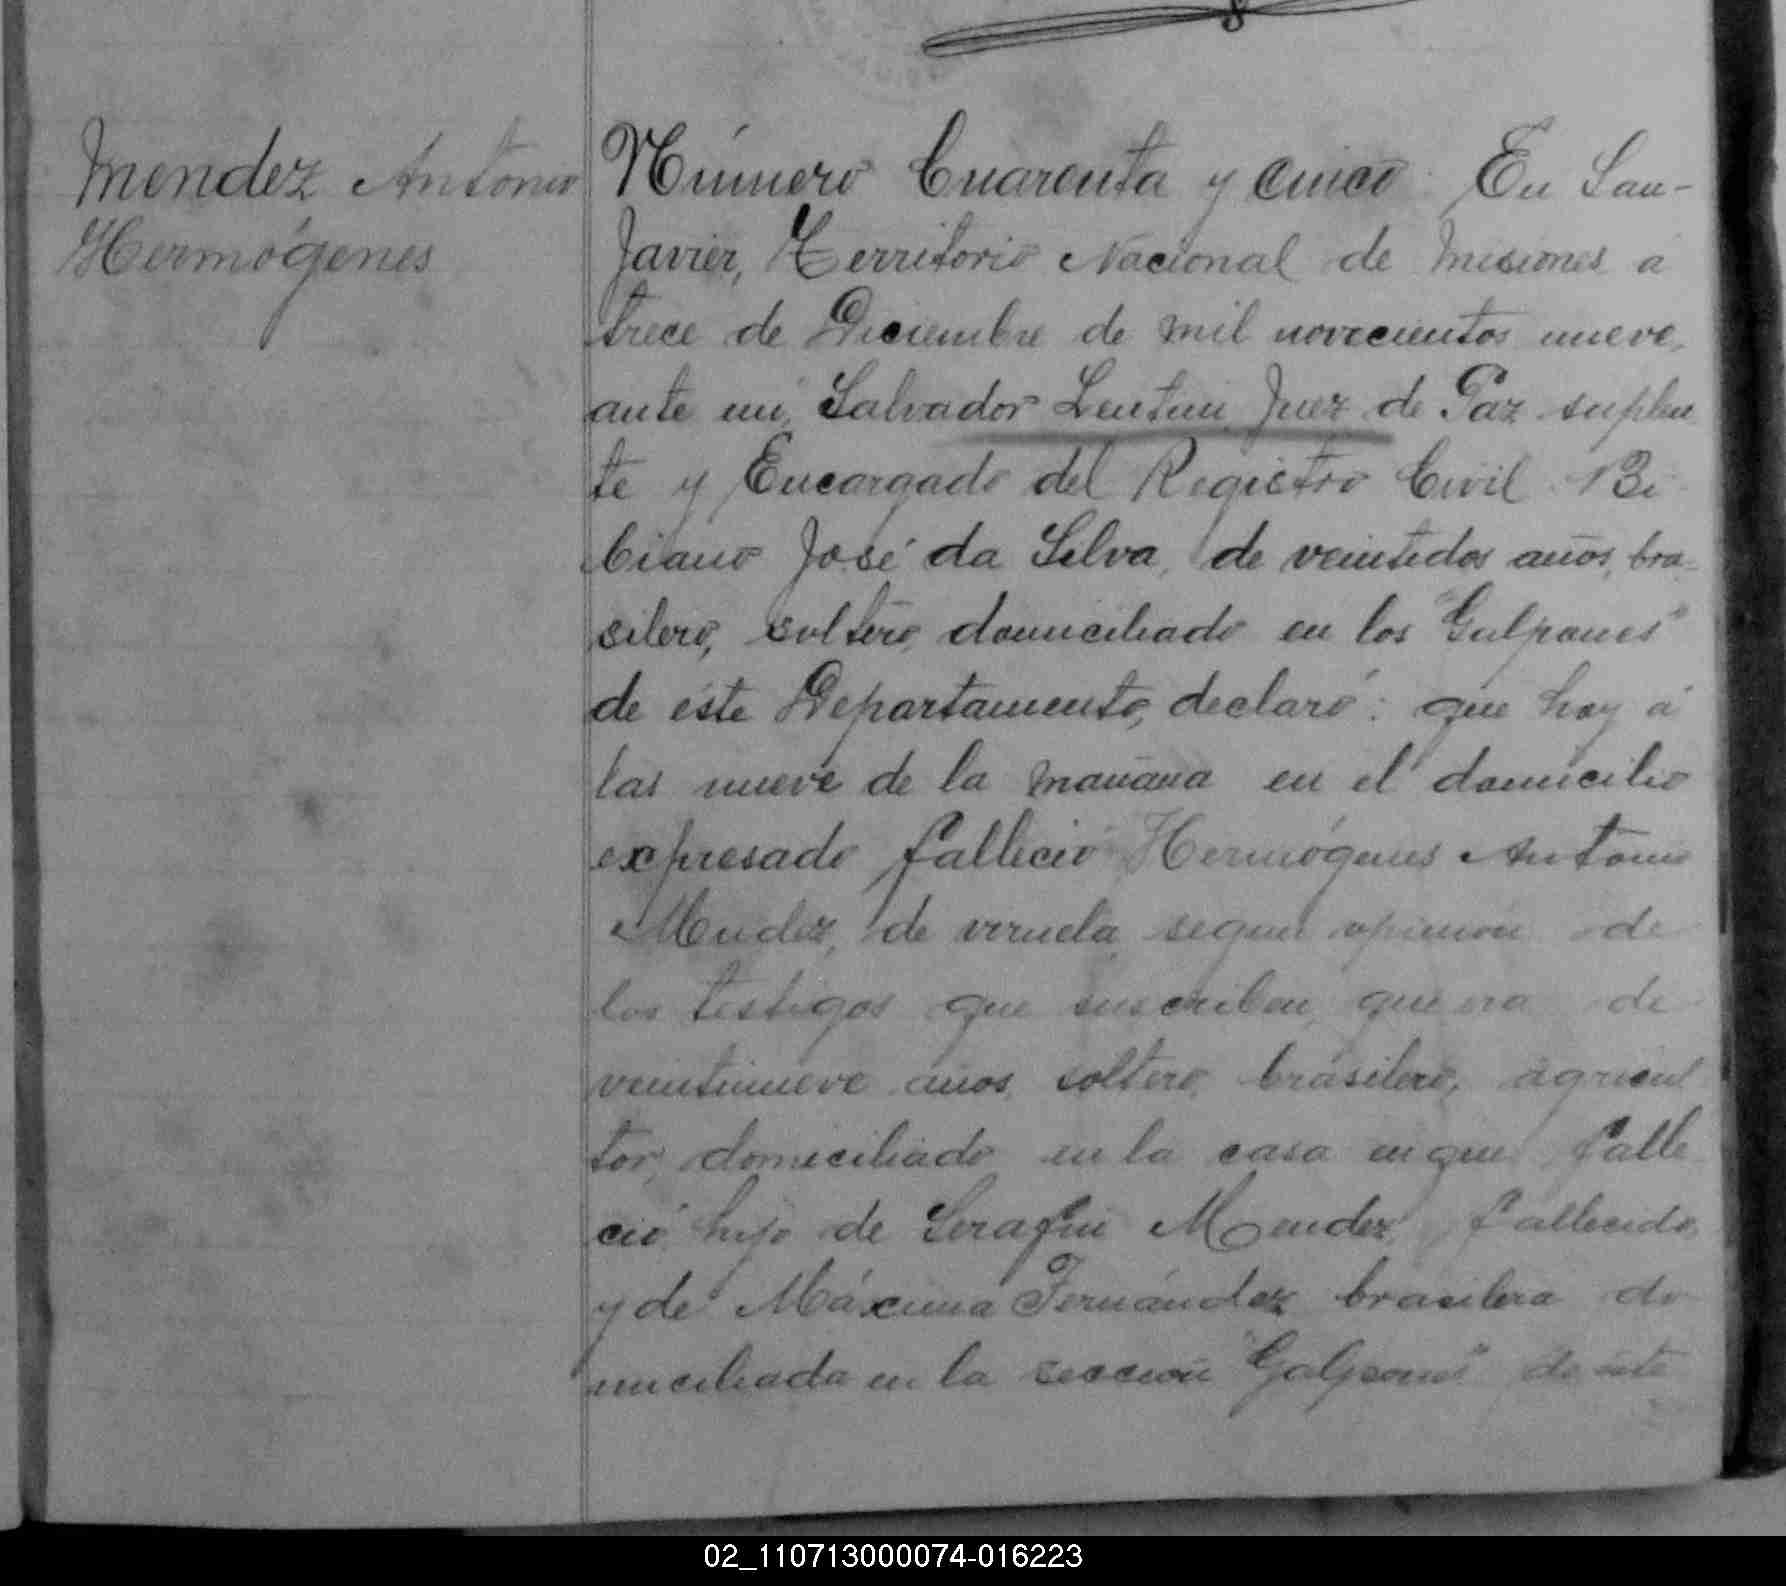 Mendez Antonio
Hermógenes
Número Cuarenta y cinco. En San-
Javier, Territorio Nacional de Misiones á
trece de Diciembre de mil novecientos nueve,
ante mí, Salvador Lentini Juez de Paz suplen
te y Encargado del Registro Civil Bi
biano José da Silva, de veintidos años, bra-
silero, soltero, domiciliado en los "Galpones"
de éste Departamento, declaró: que hoy á
las nueve de la mañana en el domicilio
expresado falleció Hermógenes Antonio
Mendez, de viruela segun opinion de
los testigos que suscriben, que era de
veintinueve años, soltero, brasilero, agricul
tor, domiciliado en la casa en que falle
ció, hijo de Serafin Mendez, fallecido,
y de Máxima Fernández brasilera do
miciliada en la seccion "Galpones" de éste
02_110713000074-016223